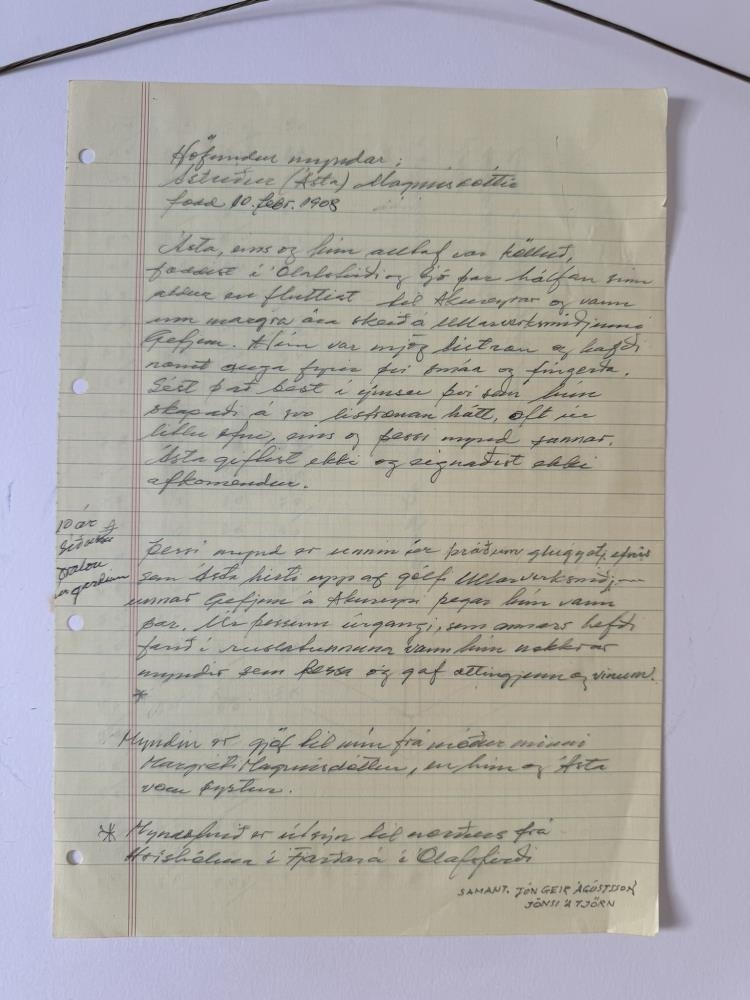 Höfundur myndar:
Ástríður (Ásta) Magnúsdóttir
fædd 10. febr. 1908
Ásta, eins og hún alltaf var kölluð,
fæddist í Ólafsfirði og bjó þar hálfan sinn
aldur en fluttist til Akureyrar og vann
um margra ára skeið á Ullarverksmiðjunni
Gefjun. Hún var mjög listræn og hafði
næmt auga fyrir því smáa og fíngerða.
Sést það best í ýmsu því sem hún
skapaði á svo listrænan hátt, oft úr
litlu efni, eins og þessi mynd sannar.
Ásta giftist ekki og eignaðist ekki
afkomendur.
10 ár
Þessi mynd er unnin úr þráðum
sem Ásta hirti upp af gólfi Ullarverksmiðj-
unnar Gefjun á Akureyri þegar hún vann
þar. Úr þessum úrgangi, sem annars hefði
farið í ruslatunnuna vann hún nokkrar
myndir sem þessa og gaf ættingjum og vinum.
*
Myndin er gjöf til mín frá móður minni
Margréti Magnúsdóttur, en hún og Ásta
voru systur.
* Myndefnið er útsýn til norðurs frá
í Fjarðará í Ólafsfirði
SAMANT. JÓN GEIR ÁGÚSTSSON
JÓNSI Á TJÖRN